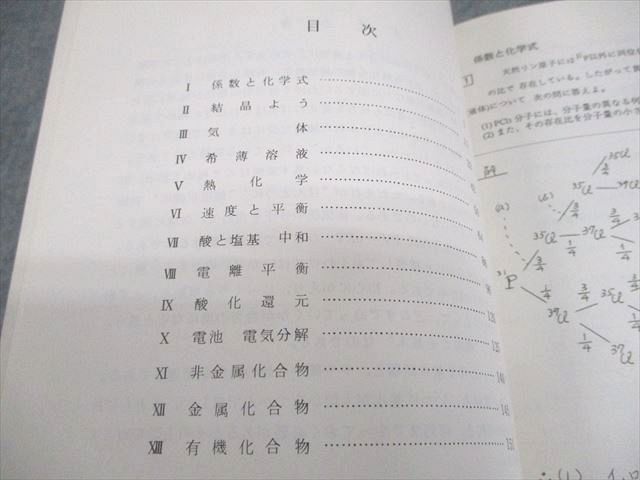 目次
Ⅰ 係数と化学式
Ⅱ 結晶よう
Ⅲ 気体
Ⅳ 希薄溶液
Ⅴ 熱化学
Ⅵ 速度と平衡
Ⅶ 酸と塩基 中和
Ⅷ 電離平衡
Ⅸ 酸化還元
Ⅹ 電池 電気分解 125
Ⅺ 非金属化合物 140
Ⅻ 金属化合物
XIII 有機化合物
係数と化学式
1 天然リン原子には³¹P以外に同位
の比で存在している。したがって
液体)について 次の問に答えよ。
(1) PCl₃分子には、分子量の異なる
(2) また、その存在比を分子量の小
³⁵Cl
3/4
³⁵Cl
(a)
3/4
³⁵Cl
3/4
³⁷Cl
1/4
³¹P
3/4
1/4
³⁷Cl
3/4
³⁵Cl
1/4
³⁷Cl